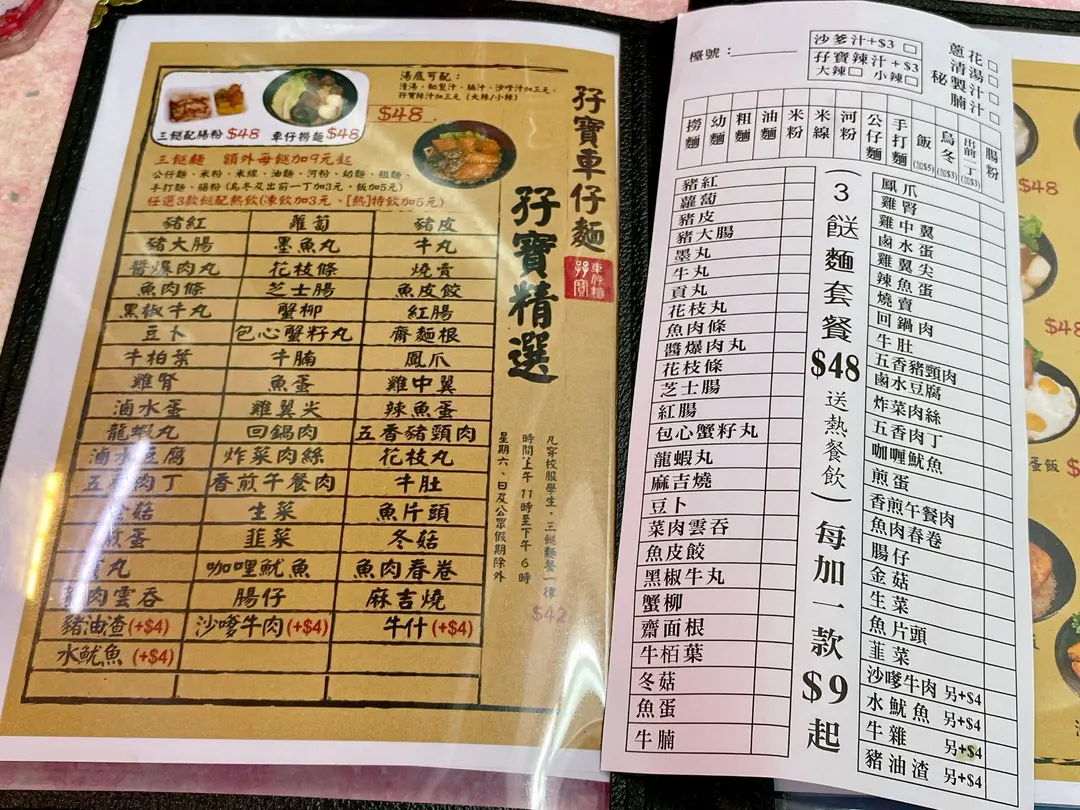 三餸配腸粉 $48
車仔撈麵 $48
湯底可配:
$48
三餸麵 額外每餸加9元起
公仔麵、米粉、米線、油麵、河粉、幼麵、粗麵、
手打麵、腸粉 (烏冬及出前一丁加3元、飯加5元)
任選3款餸配熱飲(凍飲加3元、[熱]特飲加5元)
豬紅 蘿蔔 豬皮
豬大腸 墨魚丸 牛丸
醬爆肉丸 花枝條 燒賣
魚肉條 芝士腸 魚皮餃
黑椒牛丸 蟹柳 紅腸
豆卜 包心蟹籽丸 齋麵根
牛柏葉 牛腩 鳳爪
雞腎 魚蛋 雞中翼
滷水蛋 雞翼尖 辣魚蛋
龍蝦丸 回鍋肉 五香豬頸肉
滷水豆腐 炸菜肉絲 花枝丸
五香肉丁 香煎午餐肉 牛肚
菇 生菜 魚片頭
煎蛋 韮菜 冬菇
丸 咖哩魷魚 魚肉春卷
肉雲吞 腸仔 麻吉燒
豬油渣(+$4) 沙嗲牛肉(+$4) 牛什(+$4)
水魷魚 (+$4)
孖寶車仔麵
孖寶精選
凡穿校服學生,三餸麵餐一律
$42
時間上午11時至下午6時
星期六、日及公眾假期除外
檯號:
沙爹汁+$3
孖寶辣汁+$3
大辣 小辣
蔥花
清湯
秘製汁
腩汁
撈麵
幼麵
粗麵
油麵
米粉
米線
河粉
公仔麵
手打麵
飯 (加$5)
烏冬 (加$3)
出前一丁 (加$3)
腸粉
豬紅
蘿蔔
豬皮
豬大腸
墨丸
牛丸
貢丸
花枝丸
魚肉條
醬爆肉丸
花枝條
芝士腸
紅腸
包心蟹籽丸
龍蝦丸
麻吉燒
豆卜
菜肉雲吞
魚皮餃
黑椒牛丸
蟹柳
齋面根
牛栢葉
冬菇
魚蛋
牛腩
(3餸麵套餐$48送熱餐飲)每加一款$9起
鳳爪
雞腎
雞中翼
鹵水蛋
雞翼尖
辣魚蛋
燒賣
回鍋肉
牛肚
五香豬頸肉
鹵水豆腐
炸菜肉絲
五香肉丁
咖喱魷魚
煎蛋
香煎午餐肉
魚肉春卷
腸仔
金菇
生菜
魚片頭
韮菜
沙嗲牛肉 另+$4
水魷魚 另+$4
牛雜 另+$4
豬油渣 另+$4
$48
$48
蛋飯 $